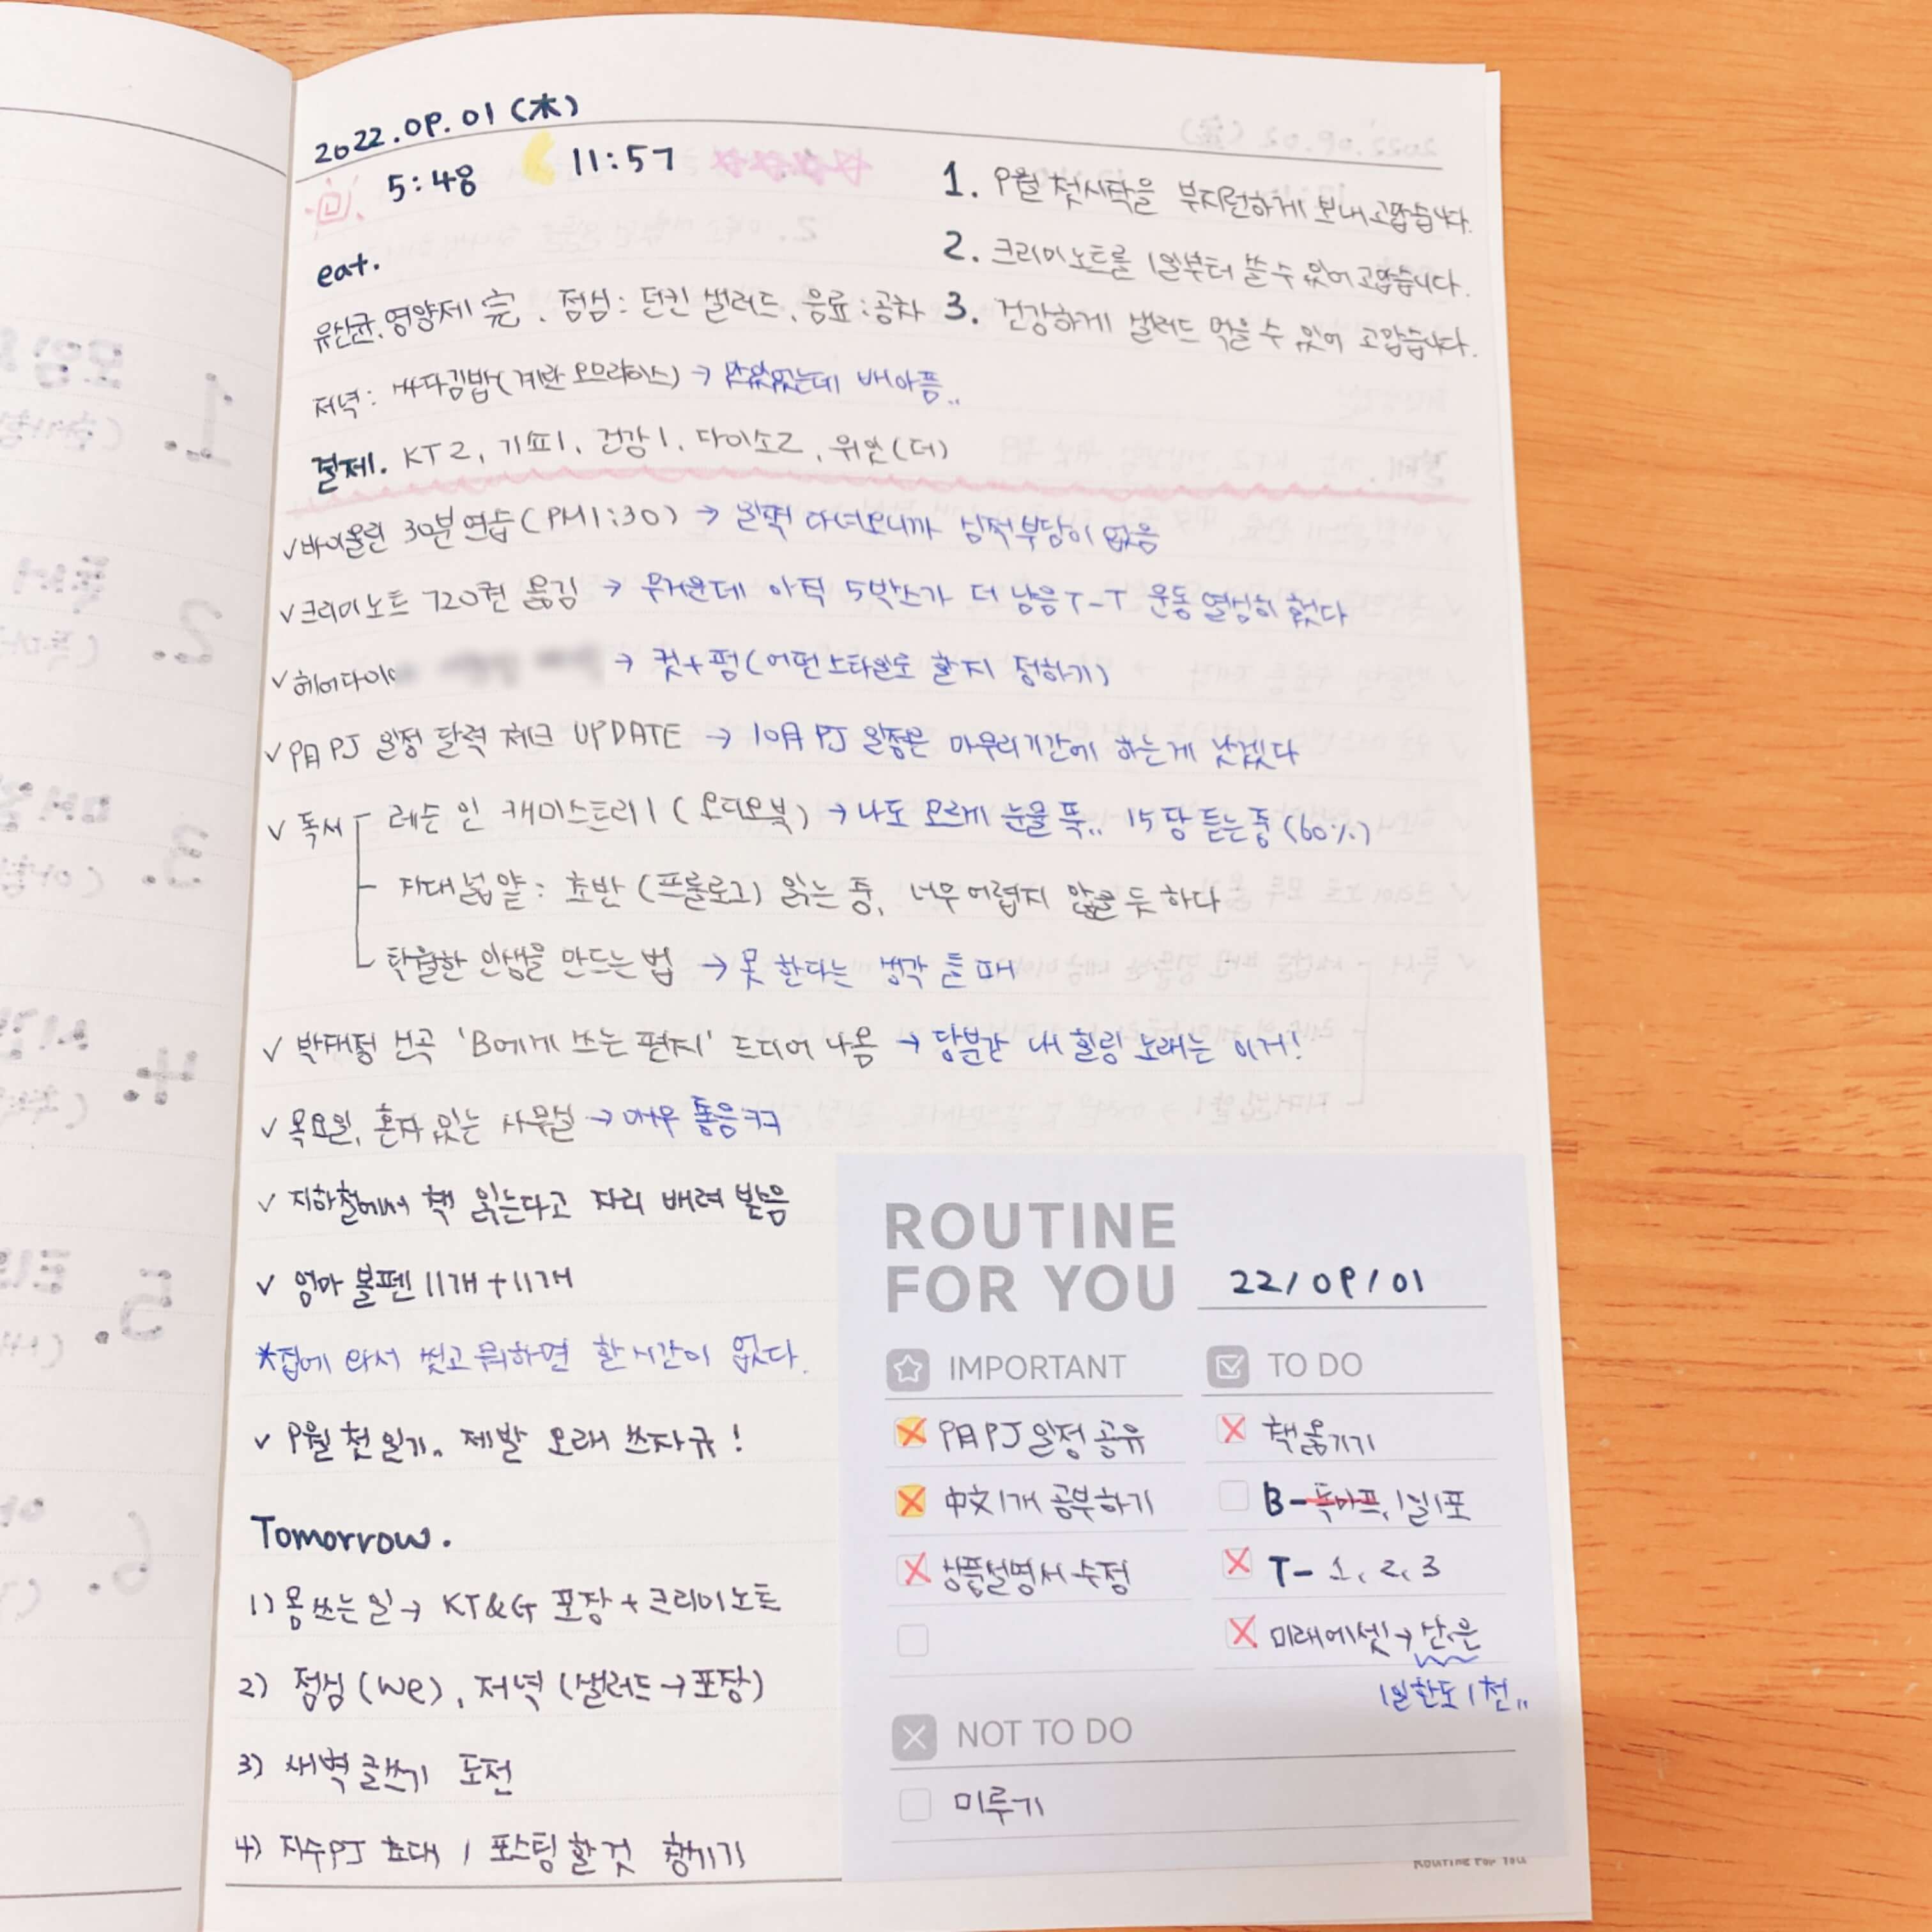 2022.09.01 (木)
5:48 11:57
1. 9월 첫시작을 부지런하게 보내 고맙습니다.
2. 크리미노트를 1일부터 쓸 수 있어 고맙습니다.
3. 건강하게 샐러드 먹을 수 있어 고맙습니다.
eat.
유산균, 영양제 完, 점심: 던킨 샐러드, 음료: 공차
저녁: 바다김밥(계란 오므라이스) → 맛있었는데 배아픔..
결제. KT2, 기쁘1, 건강1, 다이소2, 위안(더)
✓바이올린 30분 연습(PM1:30) → 일찍 다녀오니까 심적부담이 없음
✓크리미노트 720권 옮김 → 무거운데 아직 5박스가 더 남음 T-T 운동 열심히 했다
✓헤어다이 → 컷+펌(어떤스타일로 할지 정하기)
✓9月 PJ 일정 달력 체크 UPDATE → 10月 PJ 일정은 마무리기간에 하는게 낫겠다
✓ 독서 레슨 인 케미스트리 1 (오디오북) → 나도 모르게 눈물 뚝.. 15장 듣는중 (60%)
지대넓얕: 초반 (프롤로그) 읽는 중, 너무 어렵지 않을 듯 하다
탁월한 인생을 만드는 법 → 못 한다는 생각 들 때
✓ 박재정 신곡 'B에게 쓰는 편지' 드디어 나옴 → 당분간 내 힐링 노래는 이거!
✓ 목요일, 혼자 있는 사무실 → 매우 좋음ㅋㅋ
✓ 지하철에서 책 읽는다고 자리 배려 받음
✓ 엄마 볼펜 11개+11개
*집에 와서 씻고 뭐하면 한시간이 없다.
✓ 9월 첫 일기. 제발 오래 쓰자규!
Tomorrow.
1) 몸 쓰는 일 → KT&G 포장 + 크리미노트
2) 점심 (we), 저녁 (샐러드 → 포장)
3) 새벽 글쓰기 도전
4) 지수PJ 초대 / 포스팅 할 것 챙기기
ROUTINE
FOR YOU 22/09/01
IMPORTANT
9月 PJ 일정 공유
中文 1개 공부하기
상품설명서 수정
TO DO
책옮기기
B-독마프, 1일1포
T- 1, 2, 3
미래에셋 → 산은
1일한도 1천..
NOT TO DO
미루기
ROUTINE FOR YOU